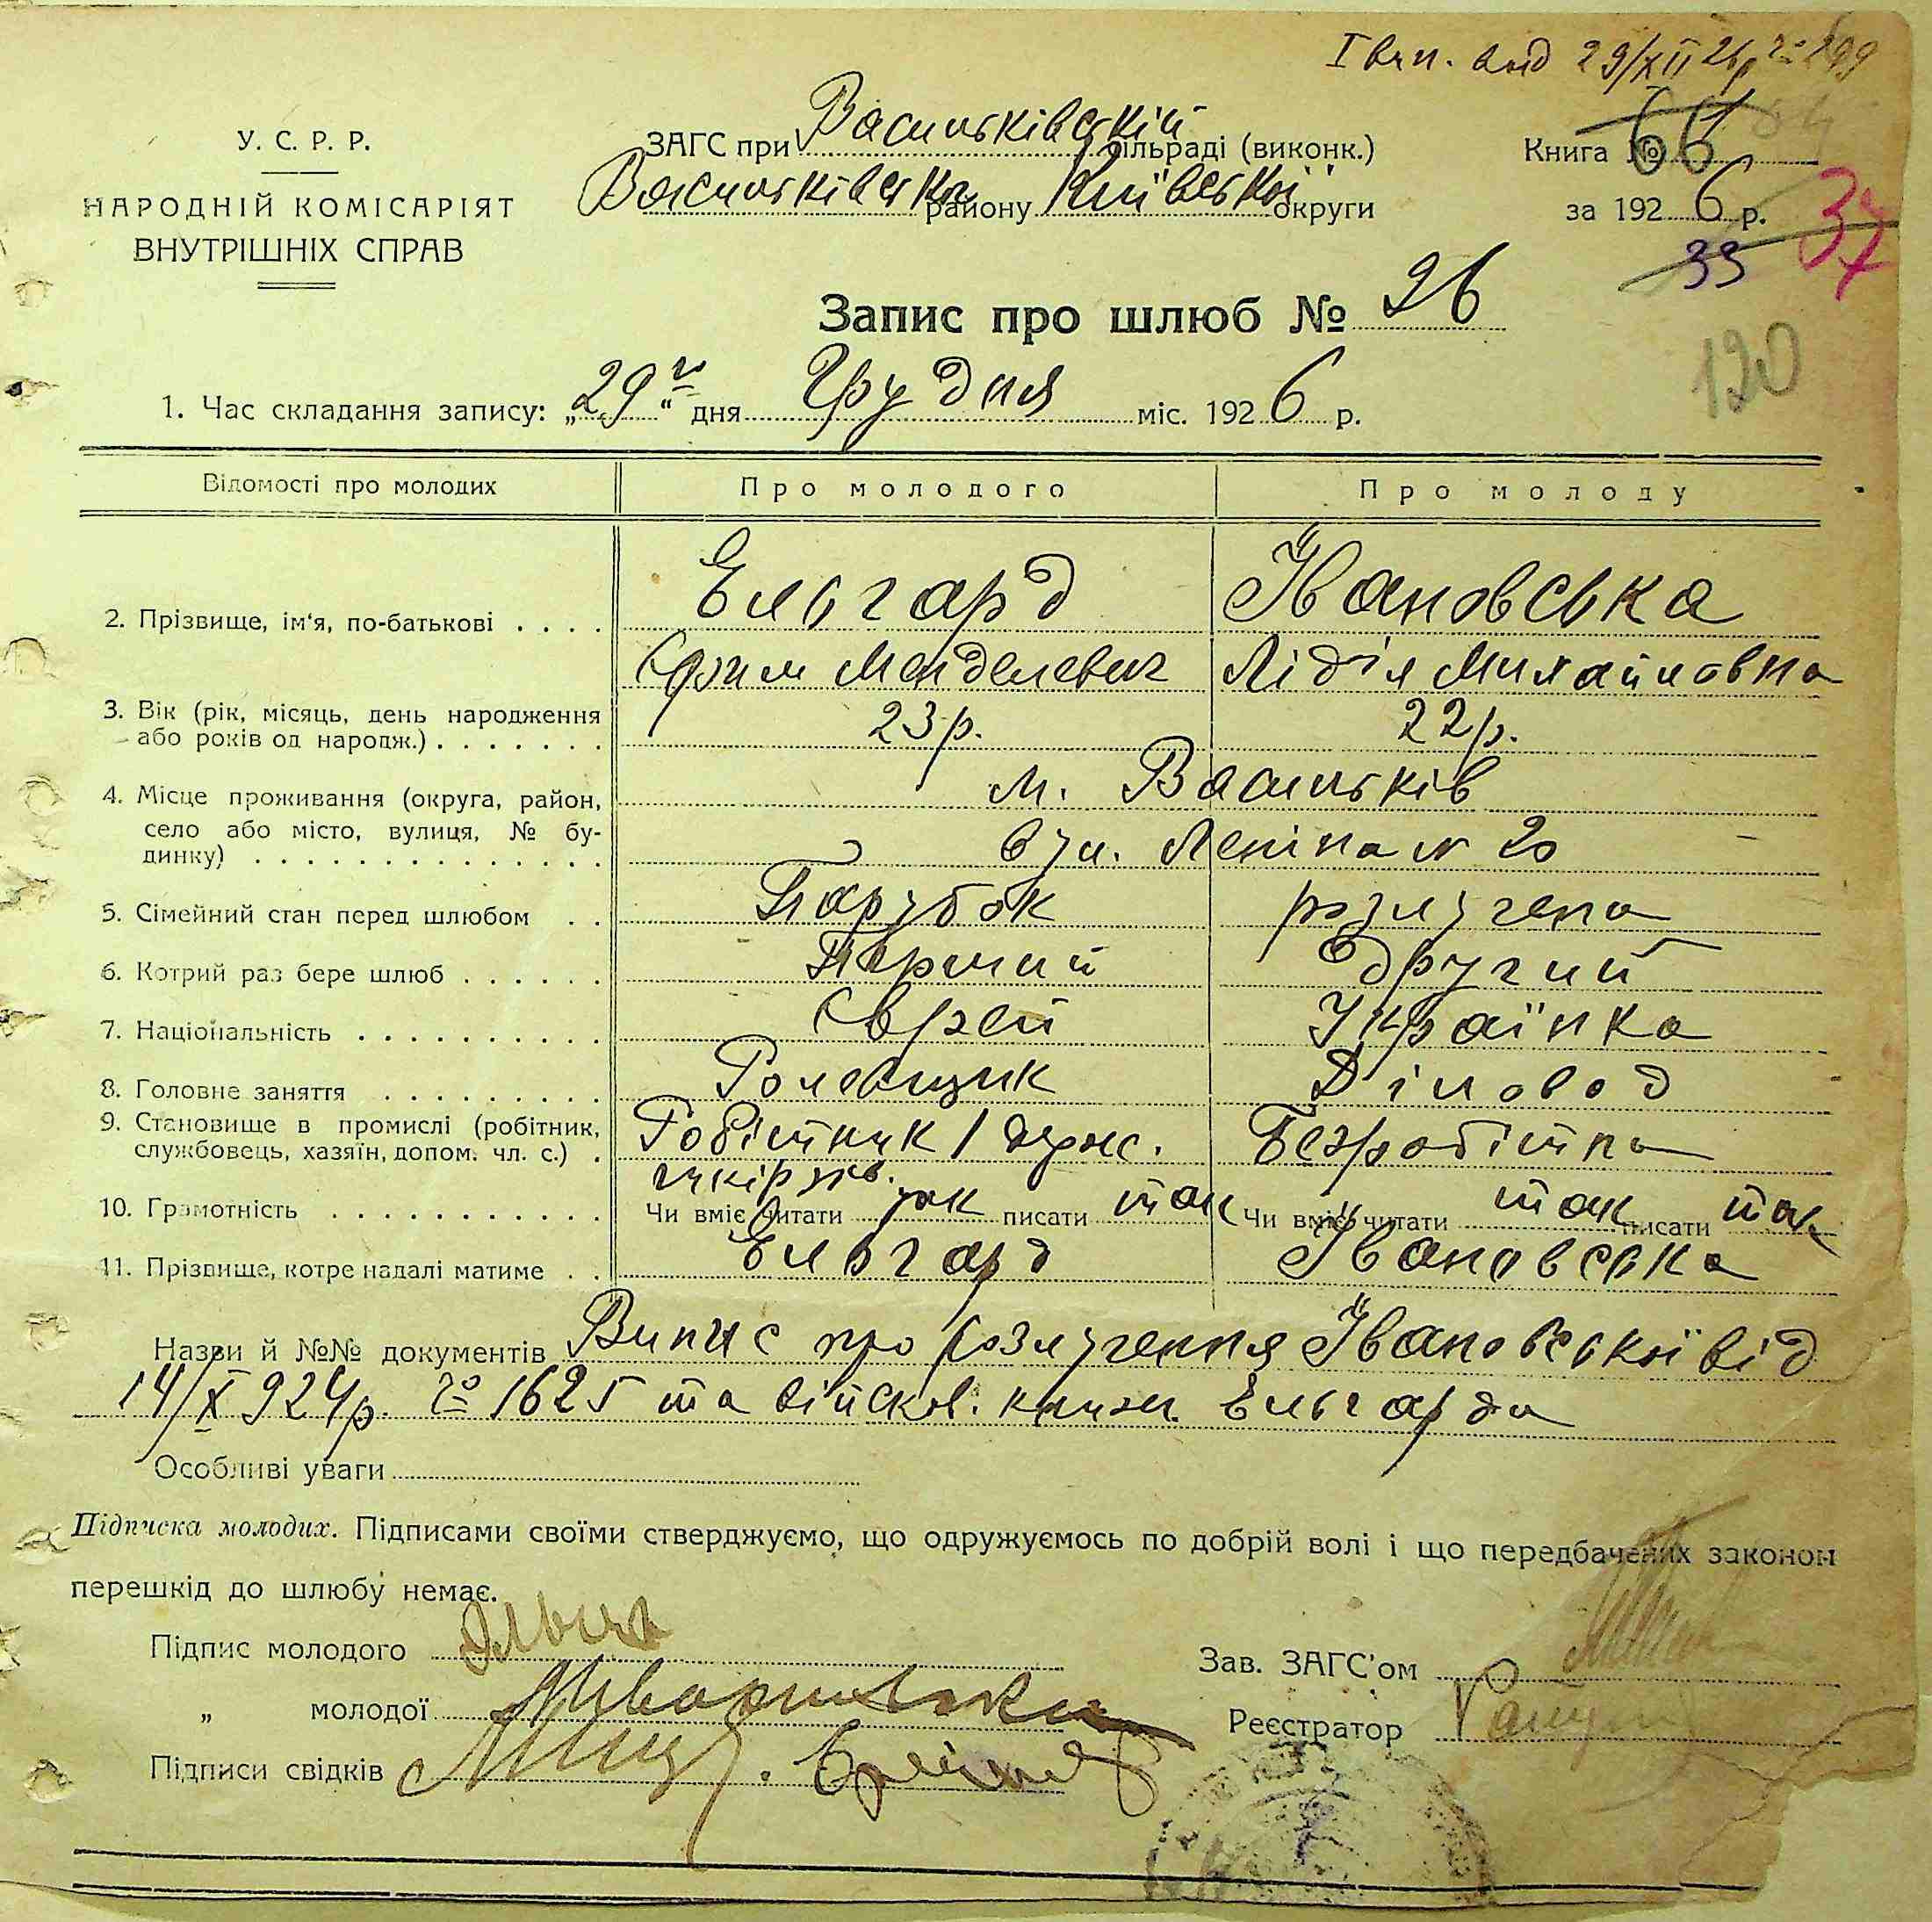 І вип. вид 29/XII 26р № 299
У. С. Р. Р.
НАРОДНІЙ КОМІСАРІЯТ
ВНУТРІШНІХ СПРАВ
ЗАГС при Васильківській сільраді (виконк.)
Васильківськ району Київської округи
Книга № 66 64
за 1926 р. 37
33
Запис про шлюб № 26
120
1. Час складання запису: „29го“ дня Грудня міс. 1926 р.
Відомості про молодих Про молодого Про молоду
2. Прізвище, ім'я, по-батькові Ельгард Івановська
Єфим Менделевич Лідія Михайловна
3. Вік (рік, місяць, день народження 23р. 22р.
або років од народж.)
4. Місце проживання (округа, район, м. Васильків
село або місто, вулиця, № бу-
динку) вул. Леніна № 20
5. Сімейний стан перед шлюбом Парубок розлучена
6. Котрий раз бере шлюб Перший Другий
7. Національність Єврей Українка
8. Головне заняття Діловод
9. Становище в промислі (робітник, Робітник держ. Безробітна
службовець, хазяїн, допом. чл. с.)
10. Грамотність Чи вміє читати так писати так Чи вміє читати так писати так
11. Прізвище, котре надалі матиме Ельгард Івановська
Назви й №№ документів Випис про розлучення Івановської від
14/X 924р. № 1625 та військов. книж. Ельгарда
Особливі уваги
Підписка молодих. Підписами своїми стверджуємо, що одружуємось по добрій волі і що передбачених законом
перешкід до шлюбу немає.
Підпис молодого
„ молодої
Підписи свідків
Зав. ЗАГС'ом
Реєстратор